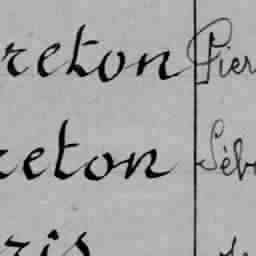 reton Pier
reton Séb
ris